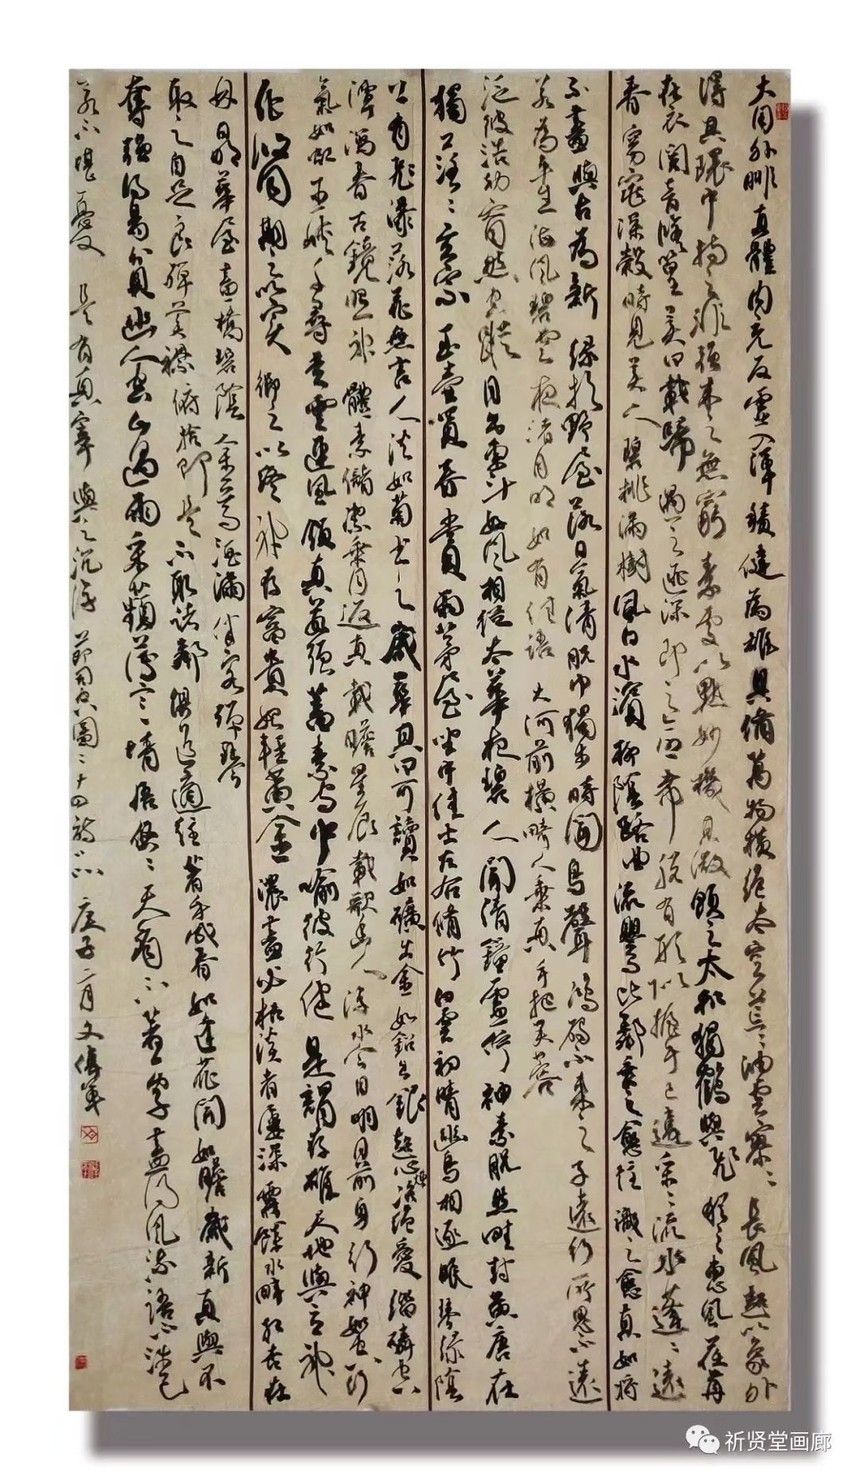 大用外腓真體內充反虛入渾積健為雄具備萬物橫絕太空荒〻油雲寥〻長風超以象外
得其環中持之非強來之無窮素處以默妙機其微飲之太和獨鶴與飛猶之惠風荏苒
在衣閱音修篁美曰載歸遇之匪深即之愈希脫有形似握手已違采〻流水蓬〻遠
春窈窕深穀時見美人碧桃滿樹風日水濱柳陰路曲流鶯比鄰乘之愈往識之愈真如將
不盡與古為新綠杉野屋落日氣清脫巾獨步時聞鳥聲鴻雁不來之子遠行所思不遠
若為平生海風碧雲夜渚月明如有佳語大河前橫畸人乘真手把芙蓉
泛彼浩劫窅然空蹤月出東斗好風相從太華夜碧人聞清鐘虛佇神素脫然畦封黃唐在
獨落〻玄宗玉壺買春賞雨茅屋坐中佳士左右修竹白雲初晴幽鳥相逐眠琴綠陰
上有飛瀑落花無言人淡如菊書之歲華其曰可讀如礦出金如鉛出銀超心冶煉絕愛緇磷空
潭瀉春古鏡照神體素儲潔乘月返真載瞻星辰載歌幽人流水今日明月前身行神如空行
氣如虹巫峽千尋走雲連風飲真茹強蓄素守中喻彼行健是謂存雄天地與立神
化攸同期之以實御之以終神存富貴始輕黃金濃盡必枯淡者屢深霧餘水畔紅杏在
林月明華屋畫橋碧陰金尊酒滿伴客彈琴
取之自足良殫美襟俯拾即是不取諸鄰俱道適往著手成春如逢花開如瞻歲新真與不
奪強得易貧幽人空山過雨采蘋薄言情悟悠〻天鈞不著一字盡得風流語不涉己
若不堪憂是有真宰與之沉浮節司空圖二十四詩品庚子二月文
祈贤堂画廊